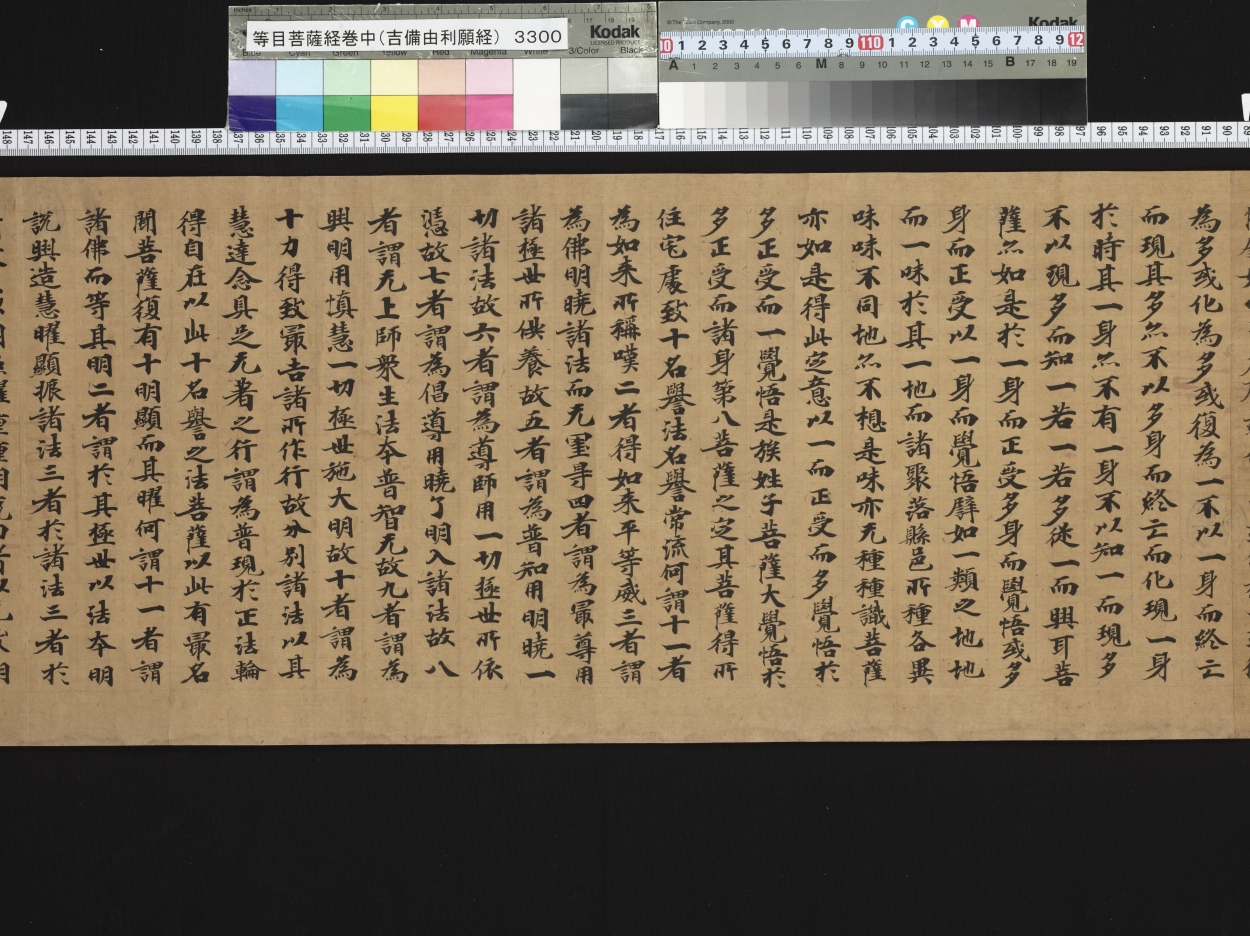 等目菩薩経巻中(吉備由利願経) 3300
Kodak
LICENSED PRODUCT
© The Tiffen Company, 2000
Kodak
為多或化為多或復為一不以一身而終亡
而現其多亦不以多身而終亡而化現一身
於時其一身亦不有一身不以知一而現多
不以現多而知一若一若多從一而興耳菩
薩亦如是於一身而正受多身而覺悟或多
身而正受以一身而覺悟譬如一類之地地
而一味於其一地而諸聚落縣邑所種各異
味味不同地亦不想是味亦无種種識菩薩
亦如是得此定意以一而正受而多覺悟於
多正受而一覺悟是族姓子菩薩大覺悟於
多正受而諸身第八菩薩之定其菩薩得所
住宅處致十名譽法名譽常流何謂十一者
為如来所稱嘆二者得如来平等威三者謂
為佛明曉諸法而无罣导四者謂為最尊用
諸極世所供養故五者謂為普知用明曉一
切諸法故六者謂為導師用一切極世所依
憑故七者謂為倡導用曉了明入諸法故八
者謂无上師眾生法本普智无故九者謂為
興明用慎慧一切極世施大明故十者謂為
十力得致最吉諸所作行故分別諸法以其
慧達念具足无著之行謂為普現於正法輪
得自在以此十名譽之法菩薩以此有最名
聞菩薩復有十明顯而其曜何謂十一者謂
諸佛而等其明二者謂於其極世以法本明
說興造慧曜顯振諸法三者於諸法三者於